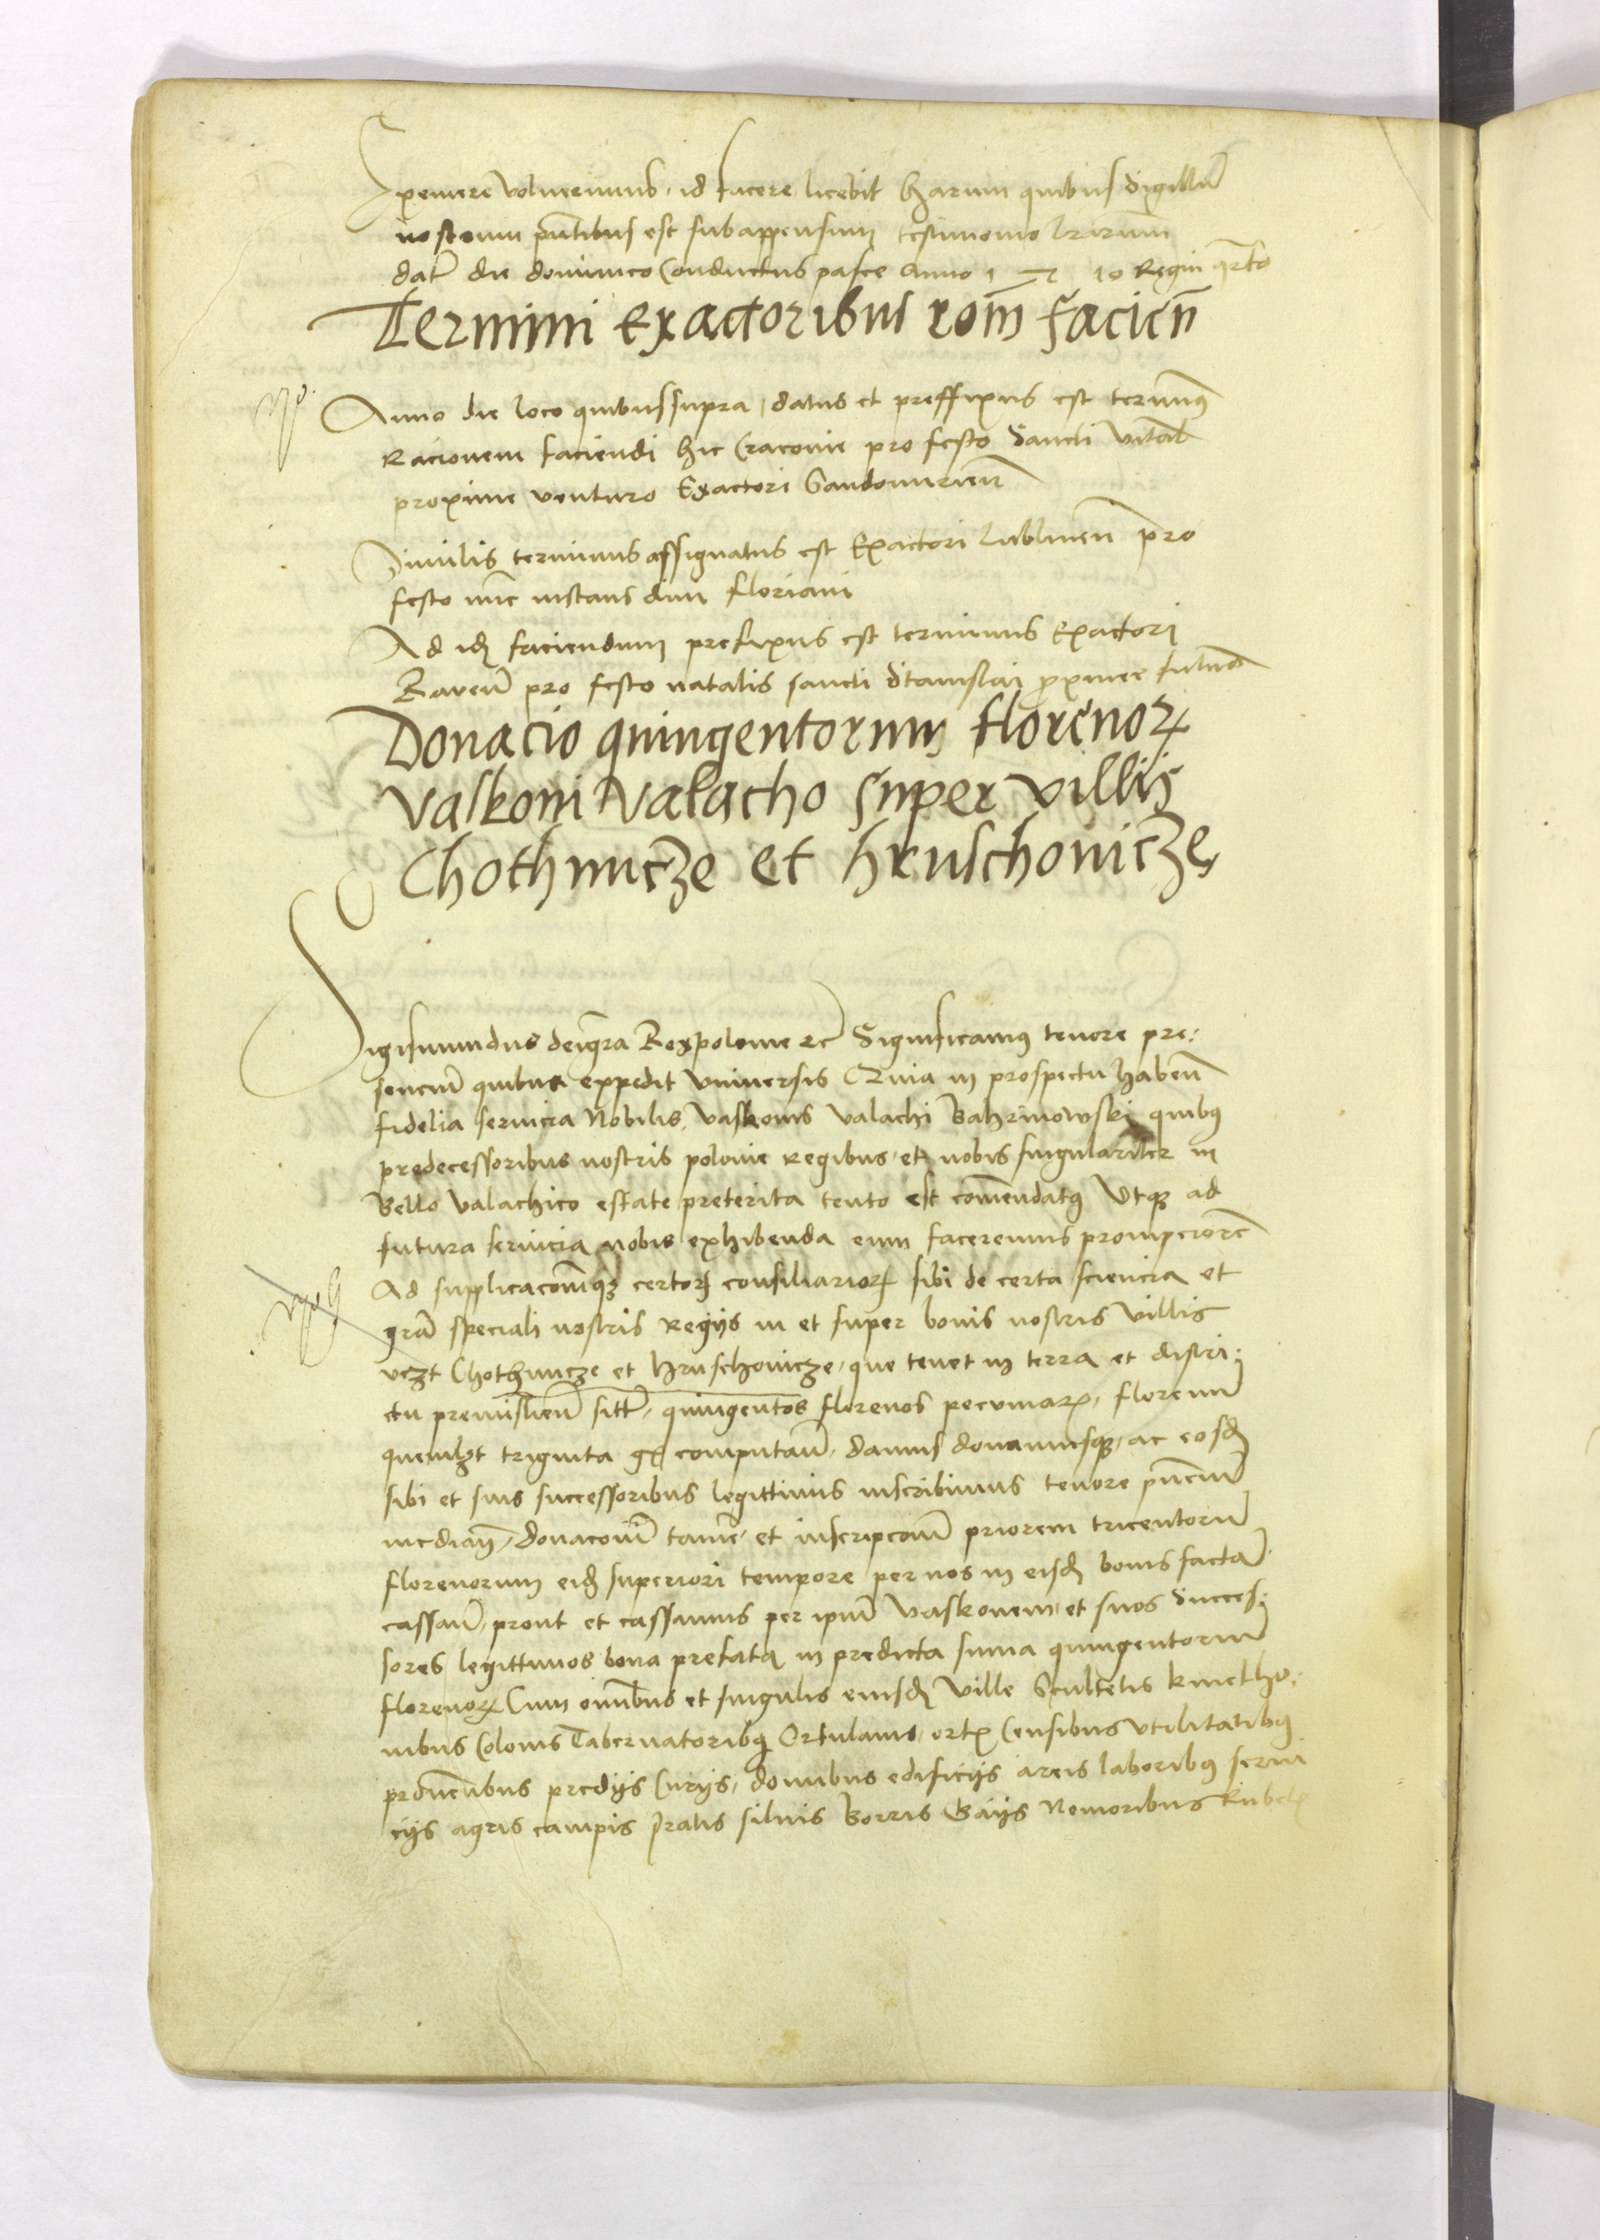 voluerimus id facere licebit Harum quibus Sigillũ
nostrum pñtibus est subappensum testimonio lrarum
datũ die dominico Conductus pasce Anno 1 10 Regni
Termini Exactoribus rõm faciẽn
Anno die loco quibus supra, datus et preffixus est terminꝰ
Racionem faciendi hic Cracovie pro festo Sancti Vitał
proxime venturo Exactori Sandomirieñ
Similis terminus assignatus est Exactori Lublineñ pro
festo nũc instans divi Floriani
Ad idẽ faciendum prefixus est terminus Exactori
Raveñ pro festo natalis sancti Stanislai futuro
Donacio quingentorum florenoꝝ
Vaskoni Valacho super villis
Chothincze et Hruschovicze
Sigismundus dei gra Rex polonie ⁊c Significamꝰ tenore pre:
senciũ quibus expedit Universis Quia in prospectu habentes
fidelia servicia Nobilis Vaskonis Valachi Bahrinowski quibꝰ
predecessoribus nostris polonie regibus et nobis singulariter in
Bello valachico estate preterita tento est comẽndatꝰ Utqꝫ ad
futura servicia nobis exhibenda eum faceremus prompciorẽ
Ad supplicacõemqꝫ certoꝝ consiliarioꝝ sibi de certa sciencia et
grã speciali nostris Regijs in et super bonis nostris villis
vczt Chothincze et Hruschovicze, que tenet in terra et distri:
ctu premislieñ sitis, quingentos florenos pecuniaꝝ, florenũ
quemlzt triginta gř computañ, damus donamusqꝫ, ac eosdẽ
sibi et suis successoribus legittimis inscribimus tenore pñciũ
mediañ, donacõnẽ tamẽ et inscripcõnẽ priorem tricentorũ
florenorum eidẽ superiori tempore per nos in eisdẽ bonis factã
cassañ, prout et cassamus per ipm̃ Vaskonem et suos Succes:
sores legittimos bona prefata in predicta suma quingentorũ
florenoꝝ Cum omibus et singulis eiusdẽ Ville Scultetis kmetho:
nibus Colonis Tabernatoribꝰ Ortulanis, ortis Censibus utilitatibꝰ
proventibus predijs Curijs, domibus edificijs areis laboribꝰ servi
cijs agris campis pratis silvis Borris Gaijs Nemoribus Rubetis